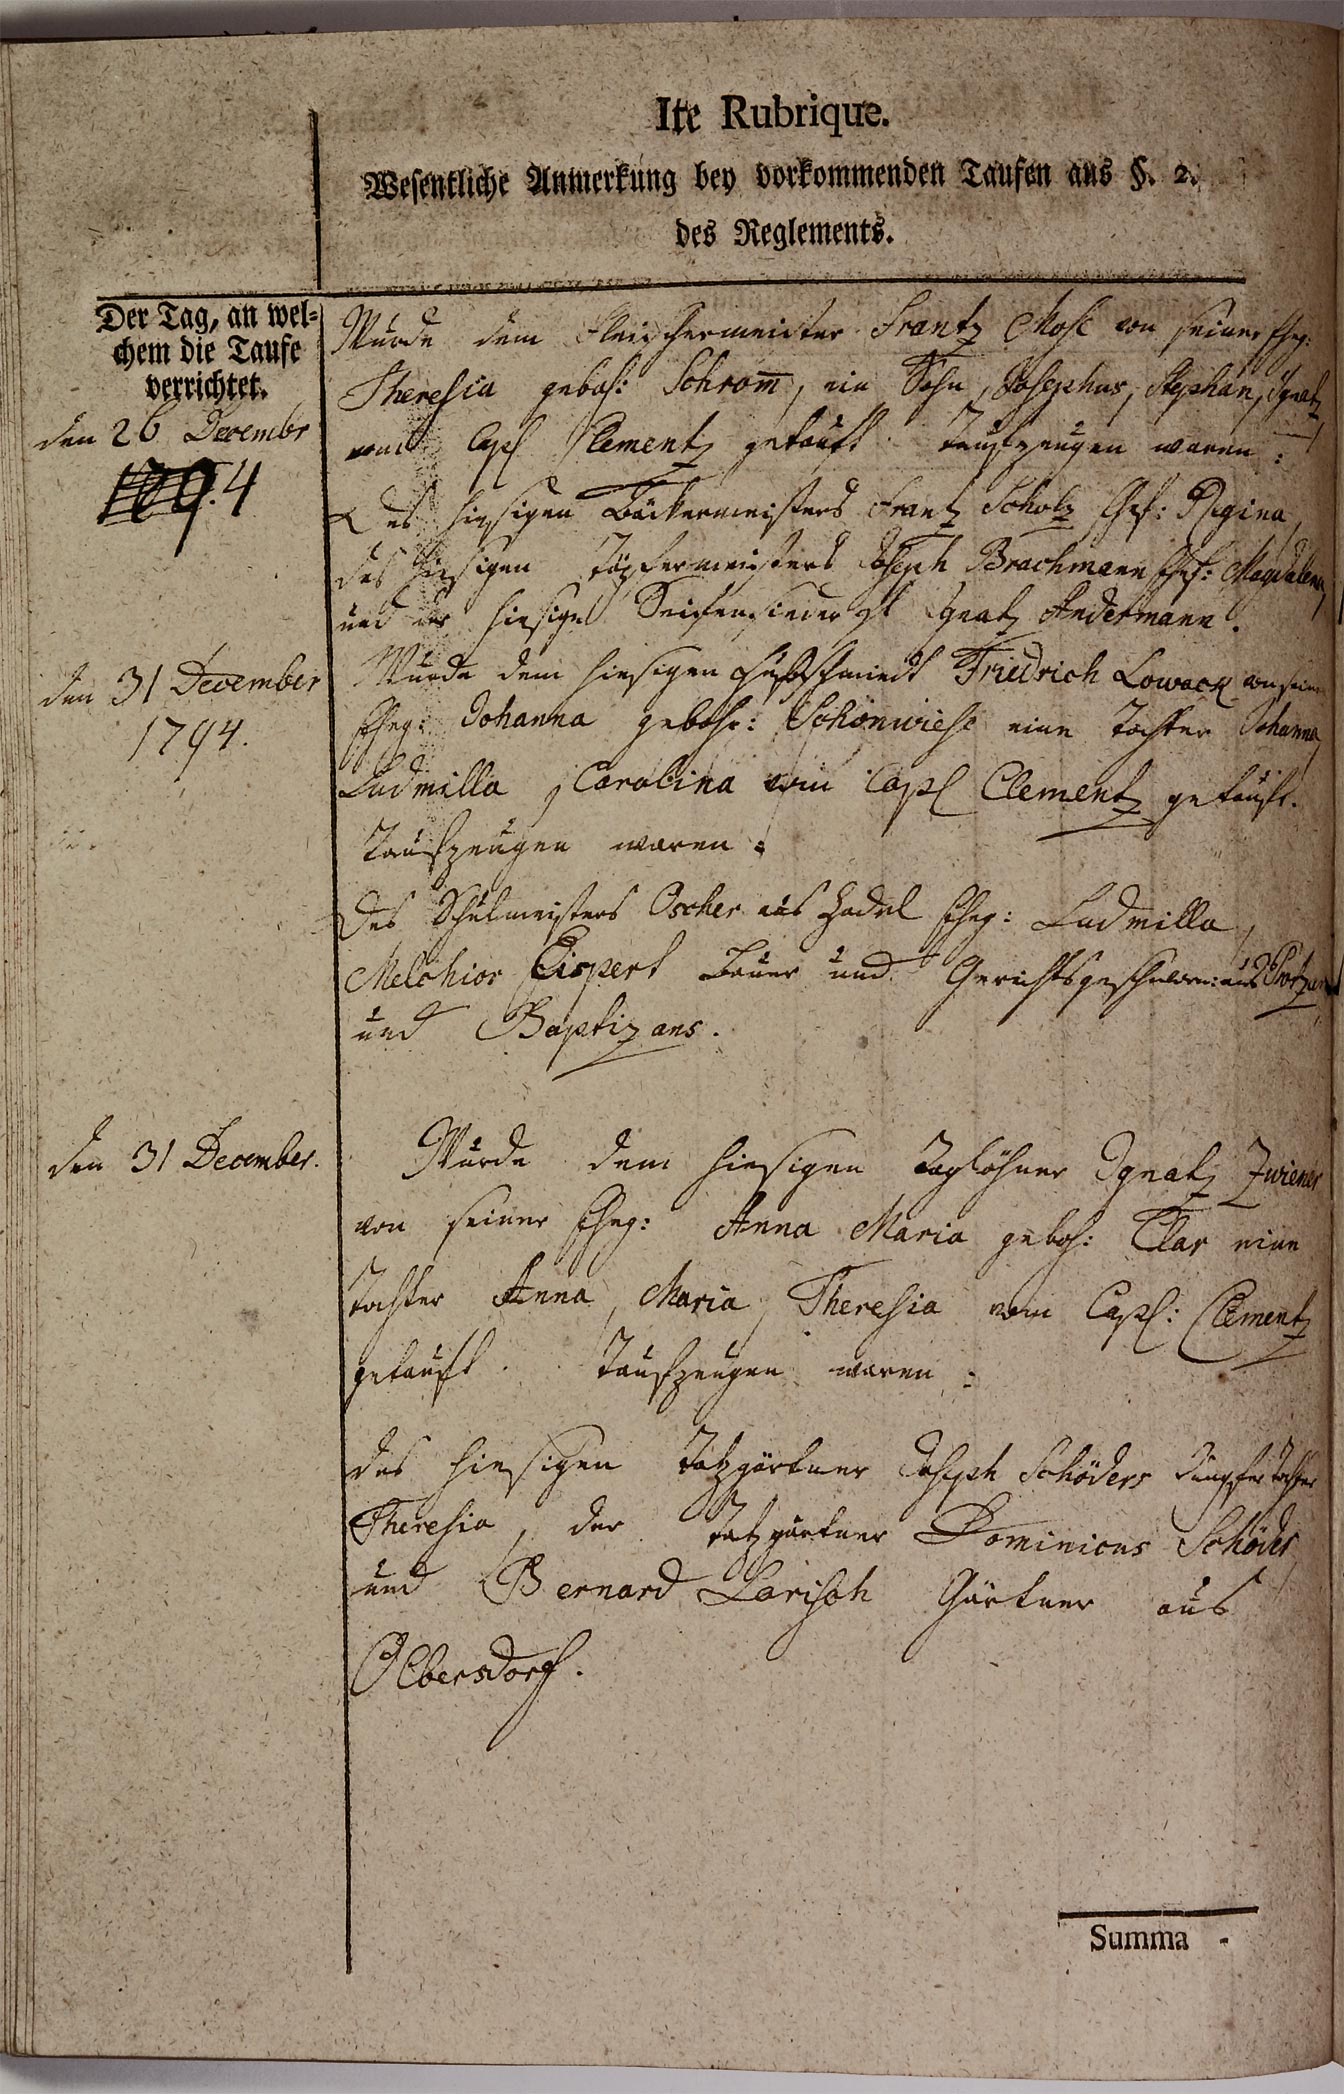 Ite Rubrique.
Wesentliche Anmerkung bey vorkommenden Taufen aus §. 2.
des Reglements.
Der Tag, an wel-
chem die Taufe
verrichtet.
den 26 Decembr
4
Wurde dem Fleischermeister Frantz Mose von seiner Eheg:
Theresia geboh: Schrom̅, ein Sohn, Josephus, Stephan, Ignatz
vom Capl Clementz getauft. Taufzeugen waren:
Des hiesigen Bäckermeisters Frantz Scholz Ehef: Regina,
des hiesigen Töpfermeisters Joseph Brachmann Ehef: Magdalena,
und der hiesige Seifensieder Ignatz Andermann.
den 31 December
1794.
Wurde dem hiesigen Hufschmiedt Friedrich Lowack von seiner
Eheg: Johanna gebohr: Schönwiese eine Tochter Johanna,
Ludmilla, Carolina vom Capl Clementz getauft.
Taufzeugen waren:
Des Schulmeisters Oscher aus Eheg: Ludmilla,
Melchior Eispert Bauer und Gerichtsgeschworn: aus
und Baptizans.
den 31 December.
Wurde dem hiesigen Taglöhner Ignatz Zwiener
von seiner Eheg: Anna Maria geboh: Klar eine
Tochter Anna, Maria, Theresia vom Capl: Clementz
getauft. Taufzeugen waren:
des hiesigen Joseph Schöders Jungfer Tochter
Theresia, der Dominicus Schöder,
und Bernard Larisch Gärtner aus
Olbersdorf.
Summa -